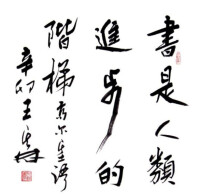 書是人類
進步的
階梯高尔基语
辛卯王